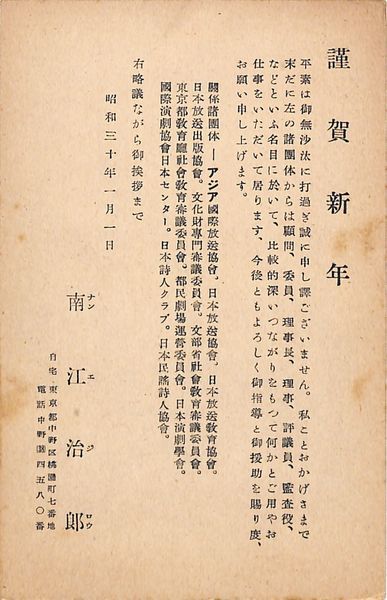 謹賀新年
平素は御無沙汰に打過ぎ誠に申し譯ございません。私ことおかげさまで
末だに左の諸團体からは顧問、委員、理事長、理事、評議員、監査役、
などといふ名目に於いて、比較的深いつながりをもつて何かとご用やお
仕事をいただいて居ります、今後ともよろしく御指導と御援助を賜り度、
お願い申し上げます。
關係諸團体―アジア國際放送協會。日本放送協會。日本放送教育協會。
日本放送出版協會。文化財專門審議委員會。文部省社會教育審議委員會。
東京都教育廳社會教育審議委員會。都民劇場運營委員會。日本演劇學會。
國際演劇協會日本センター。日本詩人クラブ。日本民謠詩人協會。
右略議ながら御挨拶まで
昭和三十年一月一日
南江治郎
ナンエジロウ
自宅 東京都中野區桃園町七番地
電話中野㊳四五八〇番